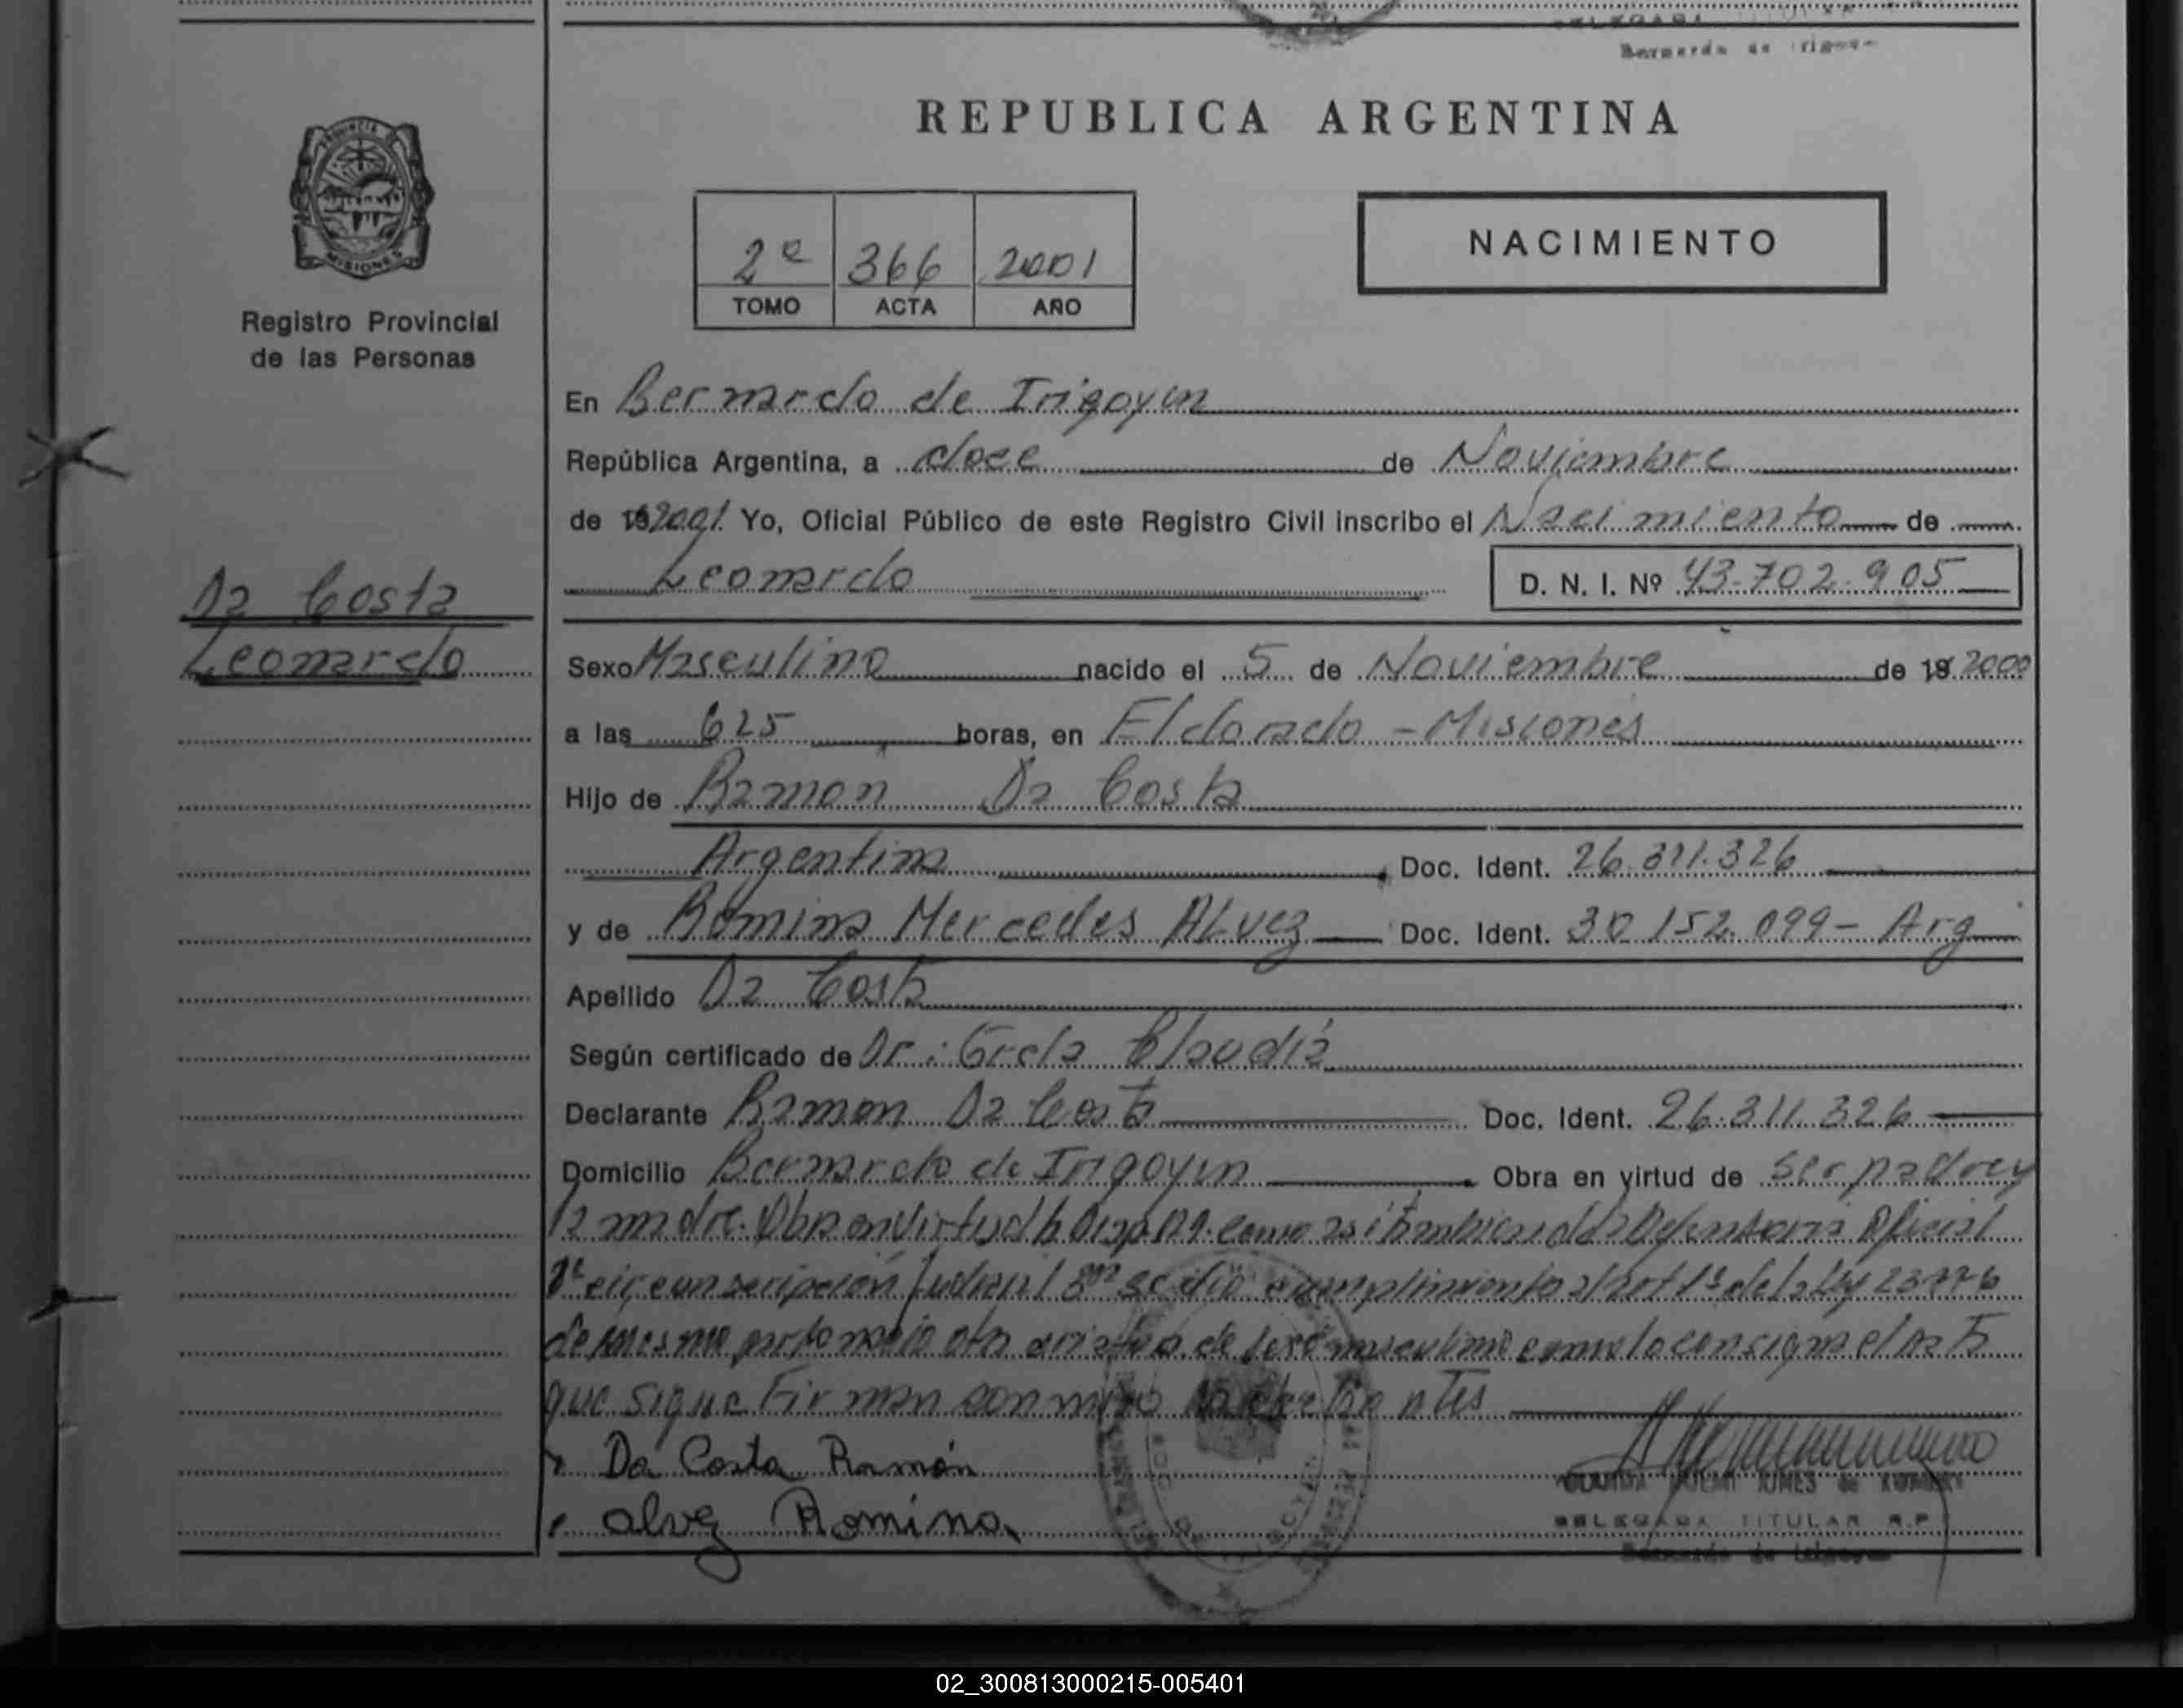 Bernardo de Irigoyen
REPUBLICA ARGENTINA
PROVINCIA DE
MISIONES
Registro Provincial
de las Personas
2º 366 2001
TOMO ACTA AÑO
NACIMIENTO
En Bernardo de Irigoyen
República Argentina, a doce de Noviembre
de 19 2001. Yo, Oficial Público de este Registro Civil inscribo el Nacimiento de
Leonardo D. N. I. Nº 43.702.905
Da Costa
Leonardo
Sexo Masculino nacido el 5 de Noviembre de 19 2000
a las 625 horas, en Eldorado - Misiones
Hijo de Ramon Da Costa
Argentina Doc. Ident. 26.311.326
y de Romina Mercedes ALvez Doc. Ident. 30.152.099 - Arg
Apellido Da Costa
Según certificado de Dr.: Claudia
Declarante Ramon Da Costa Doc. Ident. 26.311.326
Domicilio Bernardo de Irigoyen Obra en virtud de ser padre y
la madre. Obra en virtud Disp como asi tambien de la Defensoria Oficial
circunscripción Judicial se dio cumplimiento al art 1º de la Ley
de sexo masculino como lo consigna el
que sigue Firman conmigo
Da Costa Ramón
alvez Romina
DELEGADA TITULAR R.P.
Bernardo de Irigoyen
02_300813000215-005401